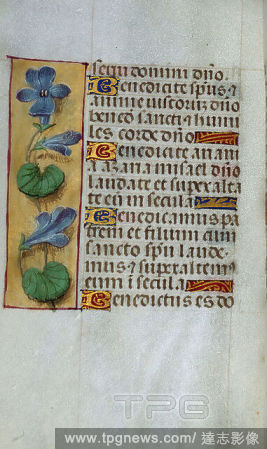 serui domini dño.
Benedicite spũs ⁊
anime iustoruʒ dño
bened̃ sancti ⁊ humi
les corde dño
Benedicite anani
a azaria misael dño
laudate et superexalta
te eum in secula
Benedicamus pa
trem et filium cum
sancto spũ laude
mus ⁊ superexaltem⁹
eum ĩ secula
Benedictus es do
TPG
www.tpgnews.com/ 達志影像